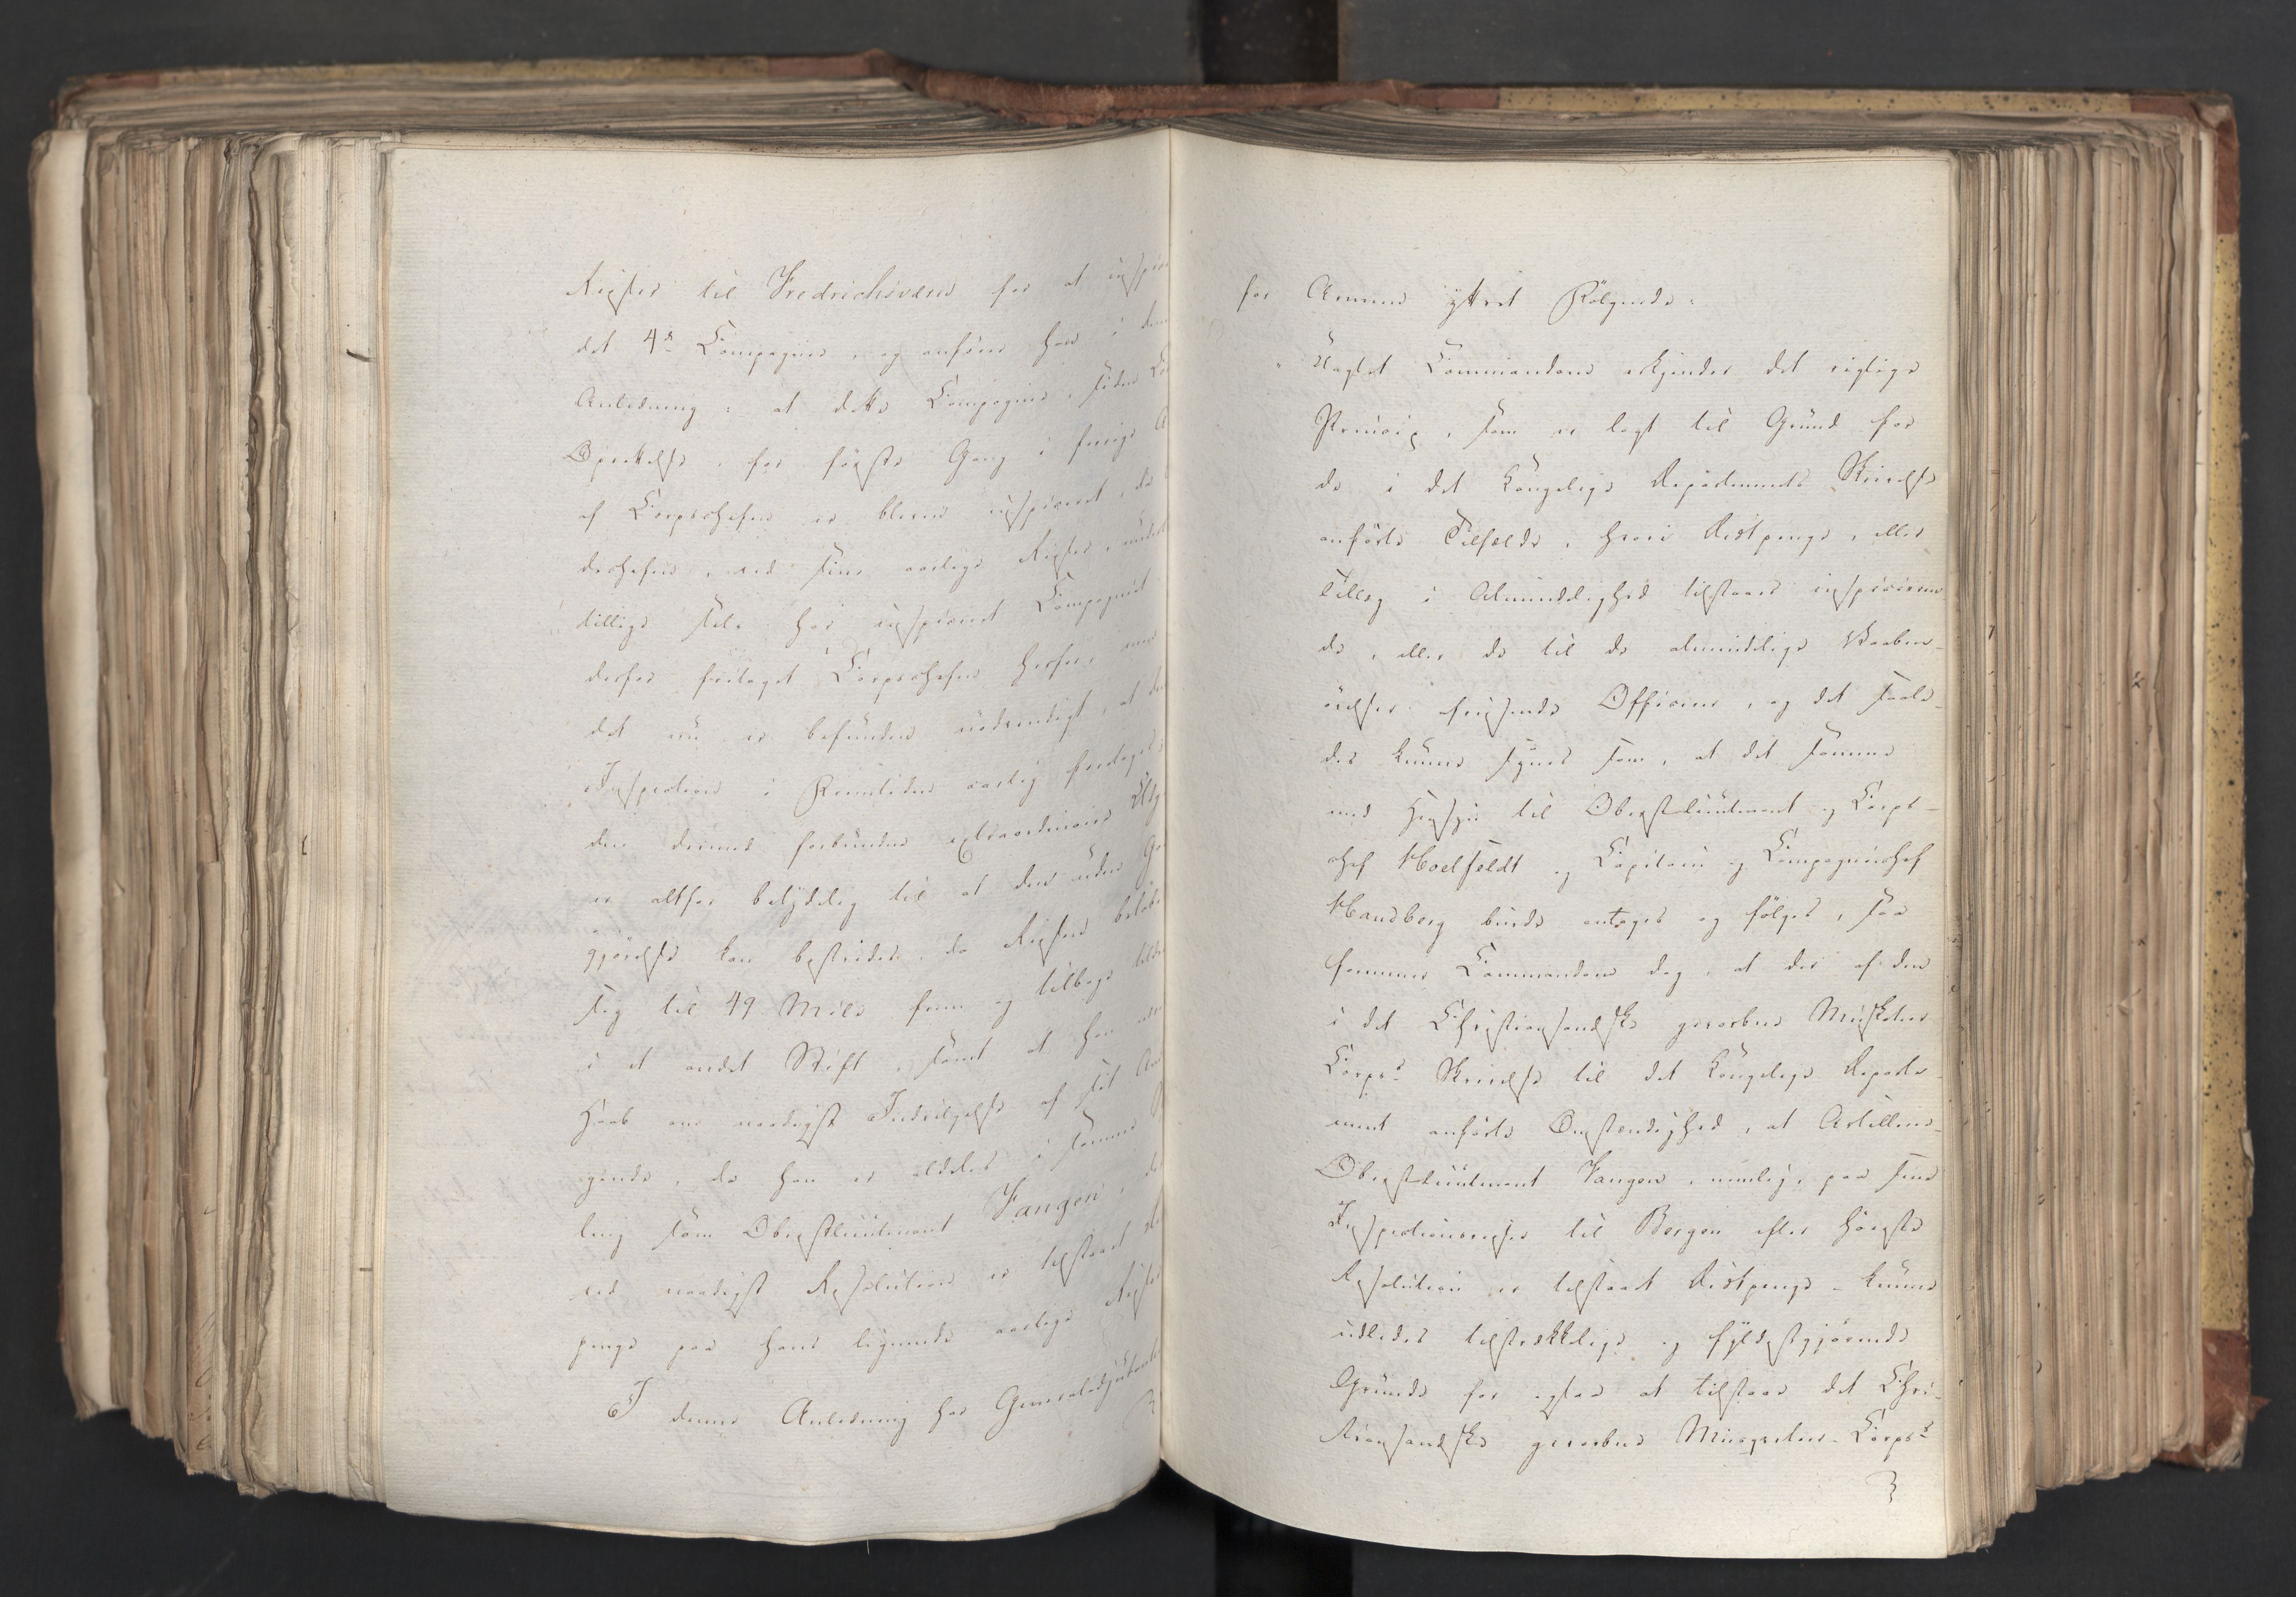 Reiser til Fredrichsværn for at inspi
det 4de Compagnie, og anfører han i den
Anledning: at dette Compagnie, siden
Oprettelse, for første Gang i forrige
af Corpschefen er bleven inspiceret, da
dechefen, ved sine aarlige Reiser,
tillige selv har inspiceret Compagniet
derfor fritaget Corpschefen herfor, men
det nu er befunden nødvendigt, at
Inspection i Fremtiden aarlig foretages
den dermed forbundne extraordinaire
er altfor betydelig til at den uden
gjørelse kan bestrides, da Reisen beløber
sig til 49 Mile frem og tilbage
i et andet Stift, samt at han
Haab om naadigst Indvilgelse af sit
gende, da han er aldeles i samme
ling som Oberstlieutenant Fangen,
ved naadigst Resolution er tilstaaet
penge paa hans lignende aarlige Reiser
I denne Anledning har Generaladjutanten
for Armeen yttret Følgende:
"Uagtet Commandoen erkjender det rigtige
Princip, som er lagt til Grund for
de i det Kongelige Departements Skrivelse
anførte Tilfælde, hvori Diætpenge, eller
Tillæg i Almindelighed tilstaaes inspiceren-
de, eller de til de almindelige Vaaben-
øvelser afreisende Officierer, og det saale-
des kunne synes som, at det samme
med Hensyn til Oberstlieutenant og Corps-
chef Moltfeldt og Capitain og Compagniechef
Mandberg burde antages og følges, saa
formener Commandoen dog, at der af den
i det Christiansandske gevorbne Musketeer
Corps's Skrivelse til det Kongelige Departe-
ment anførte Omstændighed, at Artillerie-
Oberstlieutenant Fangen, nemlig, paa sine
Inspectionsreiser til Bergen efter høieste
Resolution er tilstaaet Diætpenge - kunne
udledes tilstrækkelige og fyldestgjørende
Grunde for ogsaa at tilstaae det Chri-
stiansandske gevorbne Musqueteer-Corps's